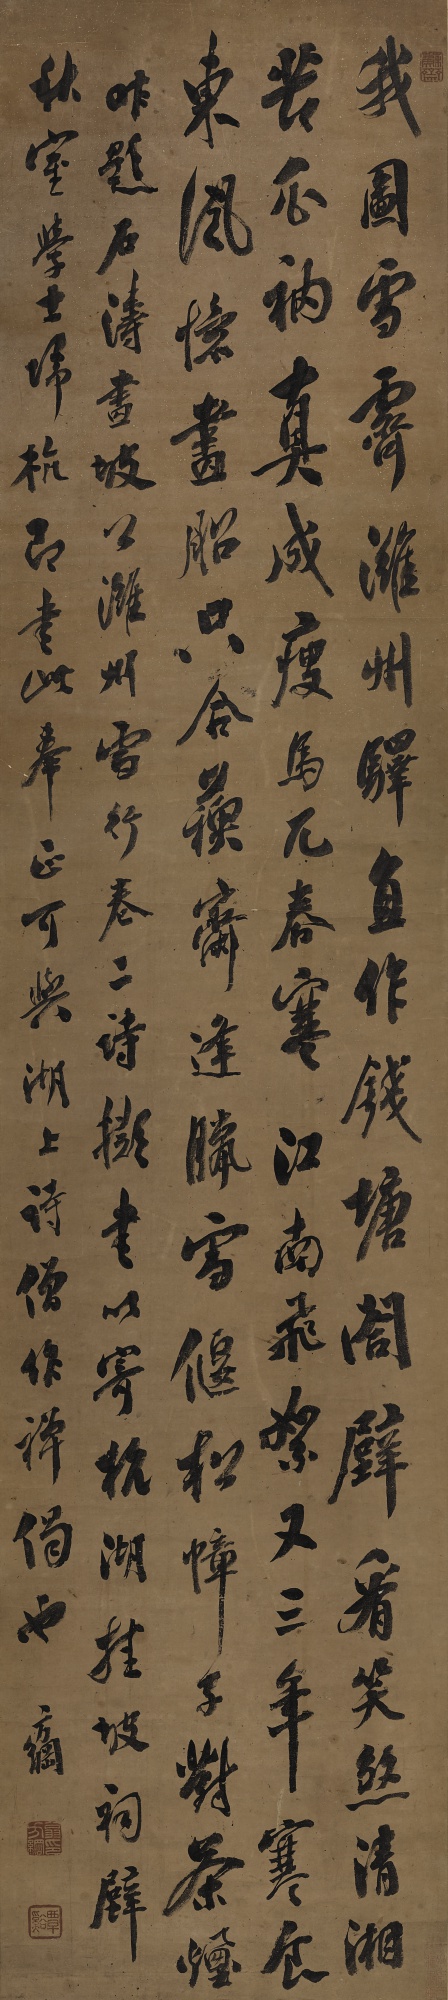 我圖雪霽濰州驛直作錢塘閣壁看笑煞清湘
苦瓜衲真成瘦馬兀春寒江南飛絮又三年寒食
東風憶畫船只合蘇齋逢臘雪偃松幛子對茶煙
昨題石濤畫坡公濰州雪行卷二詩擬書以寄杭湖挂坡祠壁
秋室學士歸杭即書此奉正可與湖上詩僧作禪偈也
方綱